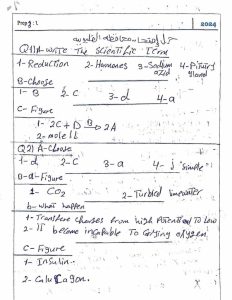 Prep: 2
2024
Q1) A-write The Scientific Term
1- Reduction 2- Hormones 3- Sodium azid 4- Pitutry gland
B-Choose
1- B 2- C 3- d 4- a
C- Figure
1- 2C + D → B 2A
2- mole
Q2) A- Choose
1- d 2- C 3- a 4- "simple"
B-a-Figure
1- CO2 2- Turbid limewater
b- what happen
1- Transfere charges from high Potention To low
2- It become incapable To Carrying oxygen
C- Figure
1- Insulin.
2- Calu Cagon.